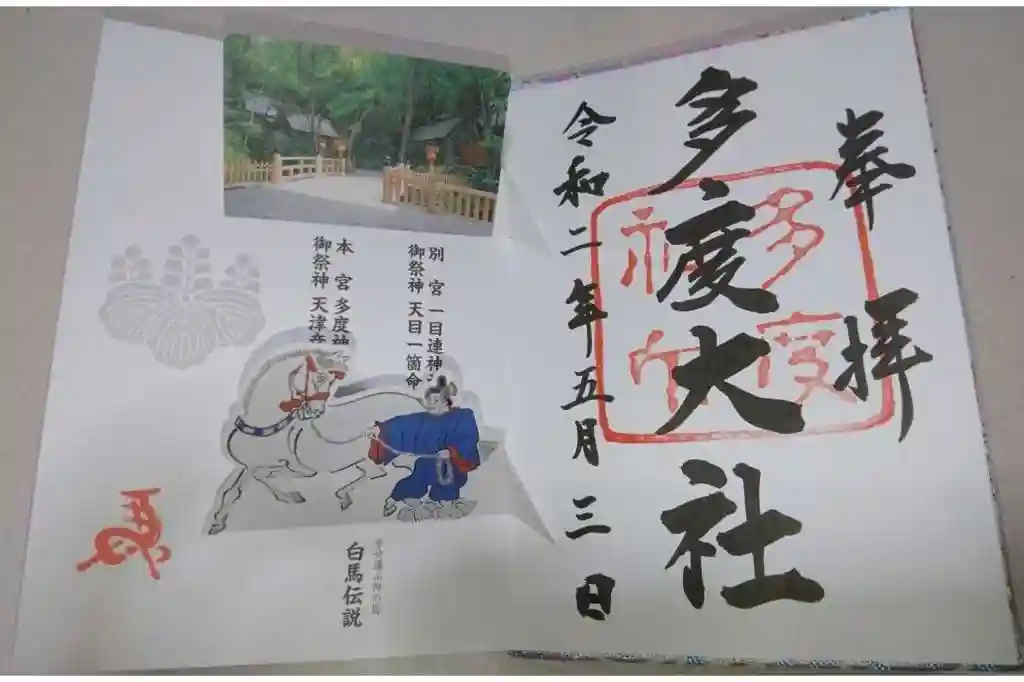 奉拝
多度大社
令和二年五月三日
多度
神社
別宮 一目連神
御祭神 天目一箇命
本宮 多度神
御祭神 天津
白馬伝説
馬